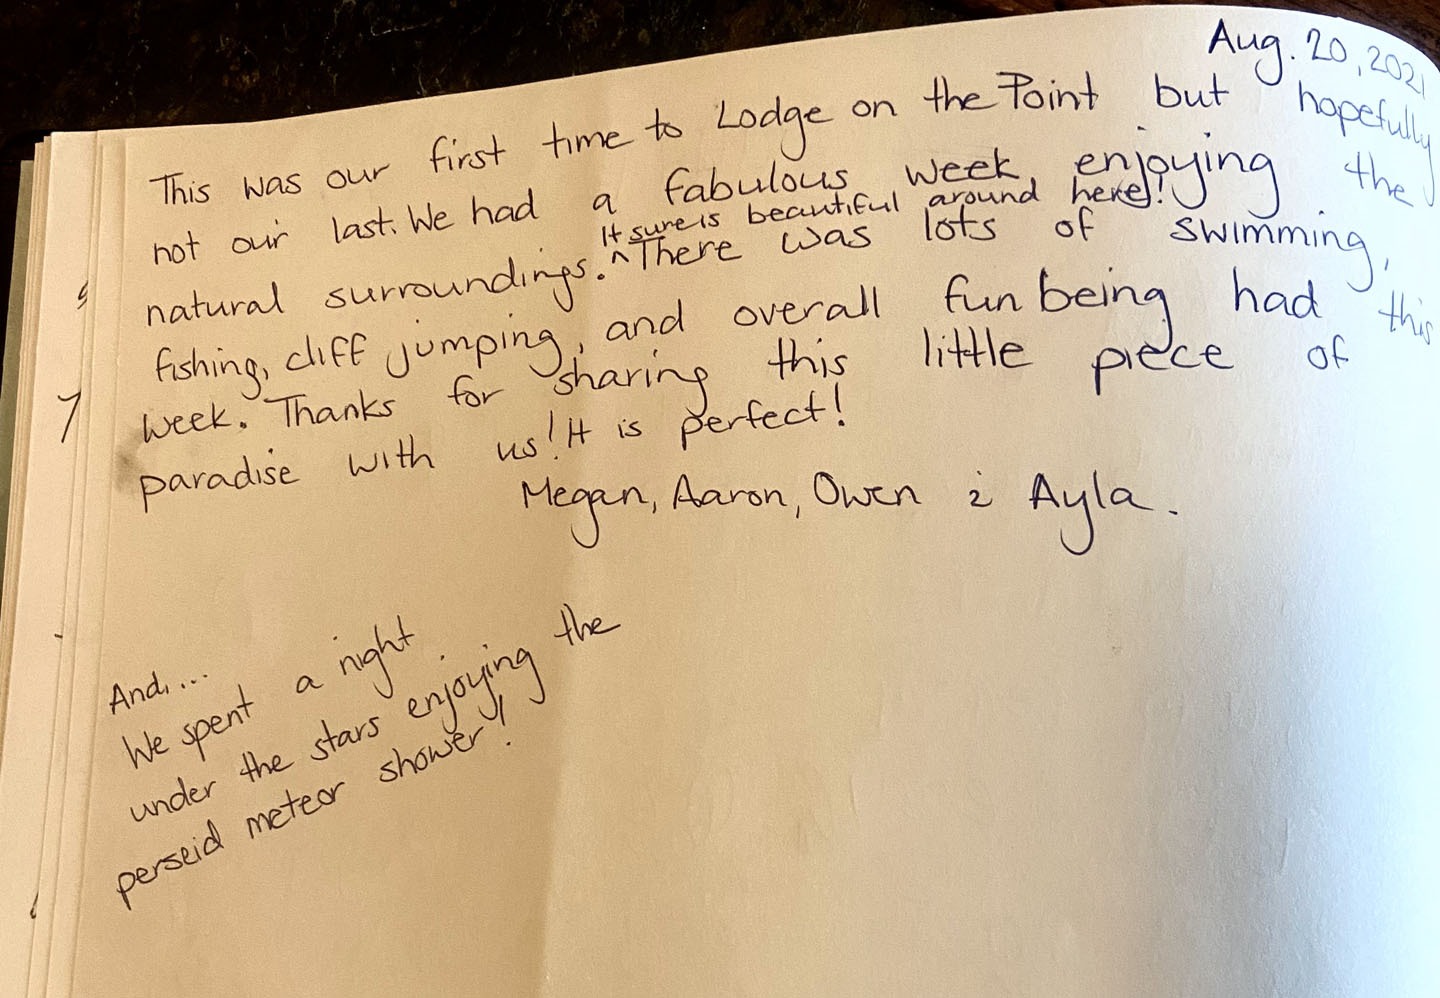 Aug. 20, 2021
This was our first time to Lodge on the Point but hopefully
not our last. We had a fabulous week, enjoying the
It sure is beautiful around here!
natural surroundings. ^ There was lots of swimming,
fishing, cliff jumping, and overall fun being had this
week. Thanks for sharing this little piece of
paradise with us! It is perfect!
Megan, Aaron, Owen & Ayla.
And....
We spent a night
under the stars enjoying the
perseid meteor shower!